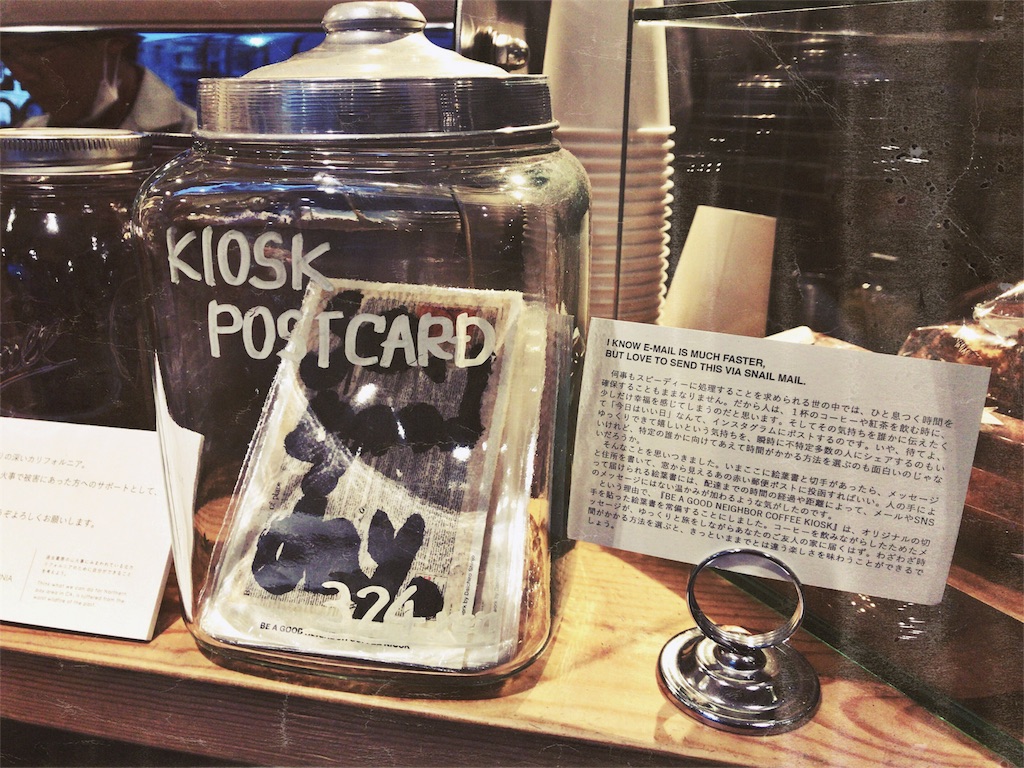 KIOSK
POSTCARD
BE A GOOD
I KNOW E-MAIL IS MUCH FASTER,
BUT LOVE TO SEND THIS VIA SNAIL MAIL.
何事もスピーディーに処理することを求められる世の中では、ひと息つく時間を
確保することもままなりません。だから人は、1杯のコーヒーや紅茶を飲む時に、
少しだけ幸福を感じてしまうのだと思います。そしてその気持ちを誰かに伝えたく
て「今日はいい日」なんて、インスタグラムにポストするのです。いや、待てよ、
ゆっくりできて嬉しいという気持ちを、瞬時に不特定多数の人にシェアするのもい
いけれど、特定の誰かに向けてあえて時間がかかる方法を選ぶのも面白いのじゃな
いだろうか。
そんなことを思いつきました。いまここに絵葉書と切手があったら、メッセージ
と住所を書いて、窓から見えるあの赤い郵便ポストに投函すればいい。人の手によ
って届けられる絵葉書には、配達までの時間の経過や距離によって、メールやSNS
のメッセージにはない温かみが加わるような気がしたのです。
という理由で、『BE A GOOD NEIGHBOR COFFEE KIOSK』は、オリジナルの切
手を貼った絵葉書を常備することにしました。コーヒーを飲みながらしたためたメ
ッセージが、ゆっくりと旅をしながらあなたのご友人の家に届くはず。わざわざ時
間がかかる方法を選ぶと、きっといままでとは違う楽しさを味わうことができるで
しょう。
の深いカリフォルニア。
火事で被害にあった方へのサポートとして、
ぞよろしくお願いします。
NIA